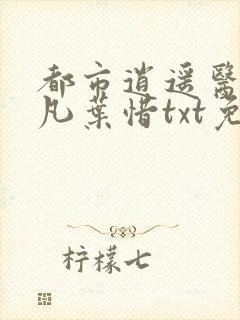 都市逍遥醫
凡葉惜txt免
柠檬七